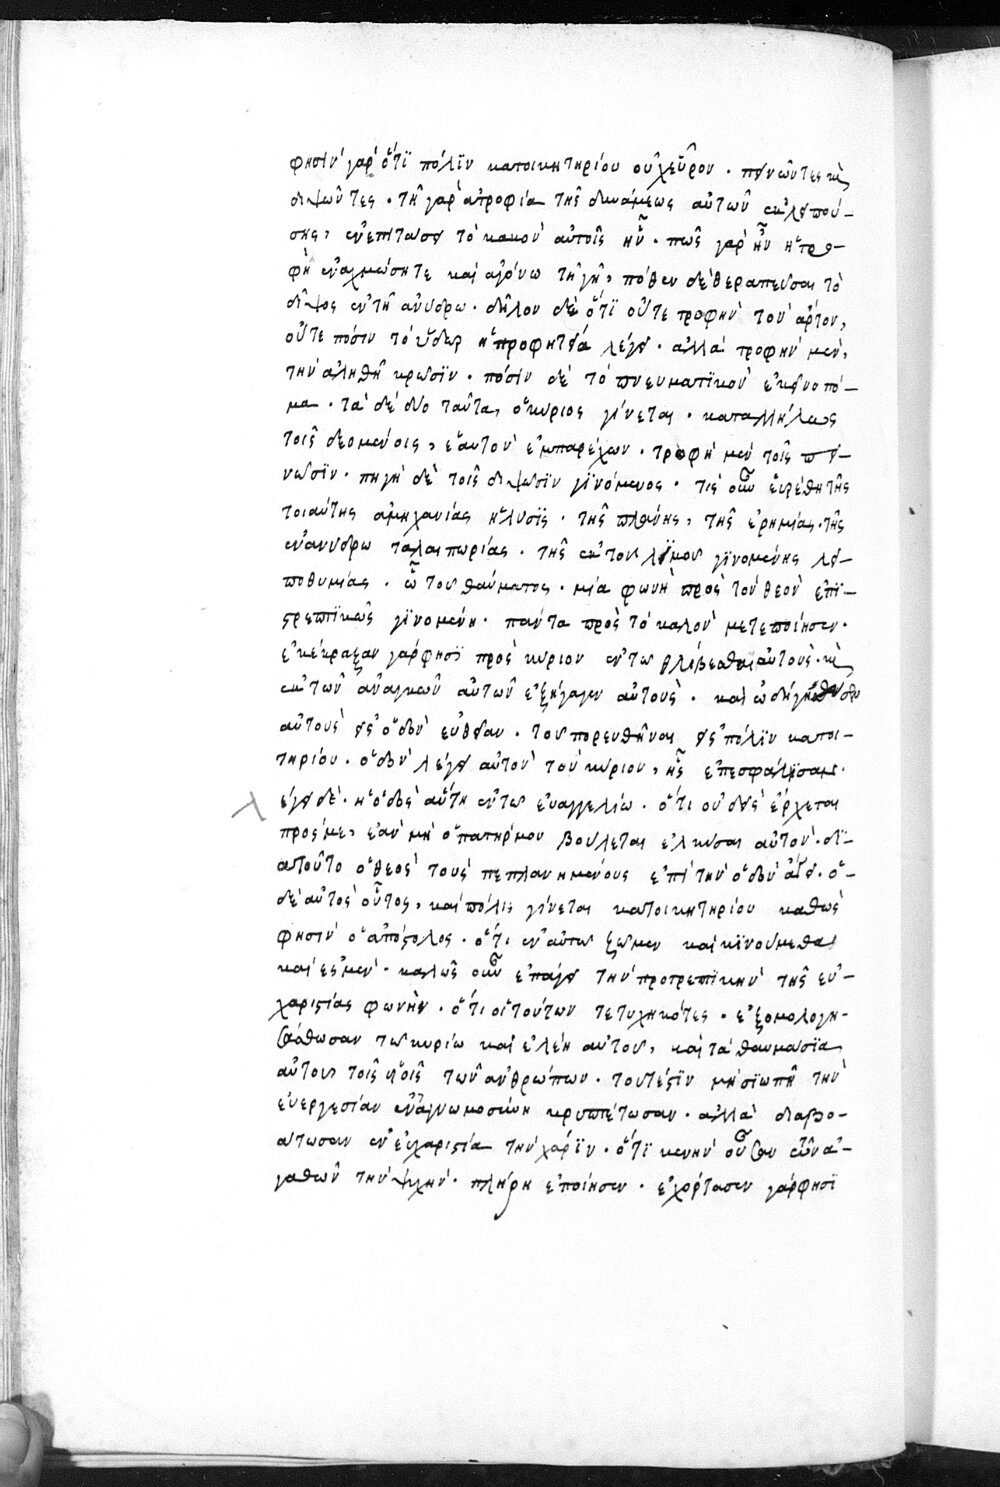 φησὶν γὰρ ὅτι πόλιν κατοικητηρίου οὐχ εὗρον · πεινῶντες καὶ
διψῶντες · τῇ γὰρ ἀτροφία τῆς δυνάμεως αὐτῶν ἐκλιπού-
σης, ἐν ἐπιτάσει τὸ κακὸν αὐτοῖς ἦν · πῶς γὰρ ἦν ἡ τρο-
φὴ ἐν ἀχμώσῃ τε καὶ ἀγόνω τῆ γῆ, πόθεν δὲ θεραπεῦσαι τὸ
δίψος ἐν τῆ ἀνύδρω · δῆλον δὲ ὅτι οὔτε τροφὴν τὸν ἄρτον,
οὔτε πόσιν τὸ ὕδωρ ἡ προφητεία λέγει · ἀλλὰ τροφὴν μὲν,
τὴν ἀληθῆ βρῶσιν · πόσιν δὲ τὸ πνευματικὸν ἐκεῖνο πό-
μα · τὰ δὲ δύο ταῦτα, ὁ κύριος γίνεται · καταλλήλως
τοῖς δεομένοις, ἑαυτὸν ἐμπαρέχων · τροφὴ μὲν τοῖς πει-
νῶσιν · πηγὴ δὲ τοῖς διψῶσιν γινόμενος · τίς οὖν εὑρέθη τῆς
τοιαύτης ἀμηχανίας ἡ λύσις · τῆς πλάνης, τῆς ἐρημίας · τῆς
ἐν ἀνύδρω ταλαιπωρίας · τῆς ἐκ τοῦ λιμοῦ γινομένης λει-
ποθυμίας · ὢ τοῦ θαύματος · μία φωνὴ πρὸς τὸν θεὸν ἐπι-
στρεπτικῶς γινομένη · πάντα πρὸς τὸ καλὸν μετεποίησεν ·
ἐκέκραξαν γάρ φησι πρὸς κύριον ἐν τῶ θλίβεσθαι αὐτοὺς · καὶ
ἐκ τῶν ἀναγκῶν αὐτῶν ἐξήγαγεν αὐτοὺς · καὶ ὡδήγησεν
αὐτοὺς εἰς ὁδὸν εὐθεῖαν · τοῦ πορευθῆναι εἰς πόλιν κατοι-
τηρίου · ὁδὸν λέγει αὐτὸν τὸν κύριον,
ἐγὼ δὲ · ἡ ὁδὸς αὕτη ἐν τῶ εὐαγγελίω · ὅτι οὐδεὶς ἔρχεται
πρός με, ἐὰν μὴ ὁ πατήρ μου βούλεται ἑλκύσαι αὐτόν · δι-
ατοῦτο ὁ θεὸς τοὺς πεπλανημένους ἐπὶ τὴν ὁδὸν ἄγει · ὁ
δὲ αὐτὸς οὗτος, καὶ πόλις γίνεται κατοικητηρίου καθὼς
φησὶν ὁ ἀπόστολος · ὅτι ἐν αὐτῶ ζῶμεν καὶ κινούμεθα
καὶ ἐσμέν · καλῶς οὖν ἐπάγει τὴν προτρεπτικὴν τῆς εὐ-
χαριστίας φωνὴν · ὅτι οἱ τούτων τετυχηκότες · ἐξομολογη-
σάσθωσαν τῶ κυρίω τὰ ἐλέη αὐτοῦ, καὶ τὰ θαυμάσια
αὐτοῦ τοῖς υἱοῖς τῶν ἀνθρώπων · τουτέστιν μὴ σιωπῆ τὴν
εὐεργεσίαν ἐν ἀγνωμοσύνη κρυπτέτωσαν · ἀλλὰ διαβο-
άτωσαν ἐν εὐχαριστία τὴν χάριν · ὅτι κενὴν οὖσαν τῶν ἀ-
γαθῶν τὴν ψυχὴν · πλήρη ἐποίησεν · ἐχόρτασεν γάρ φησι